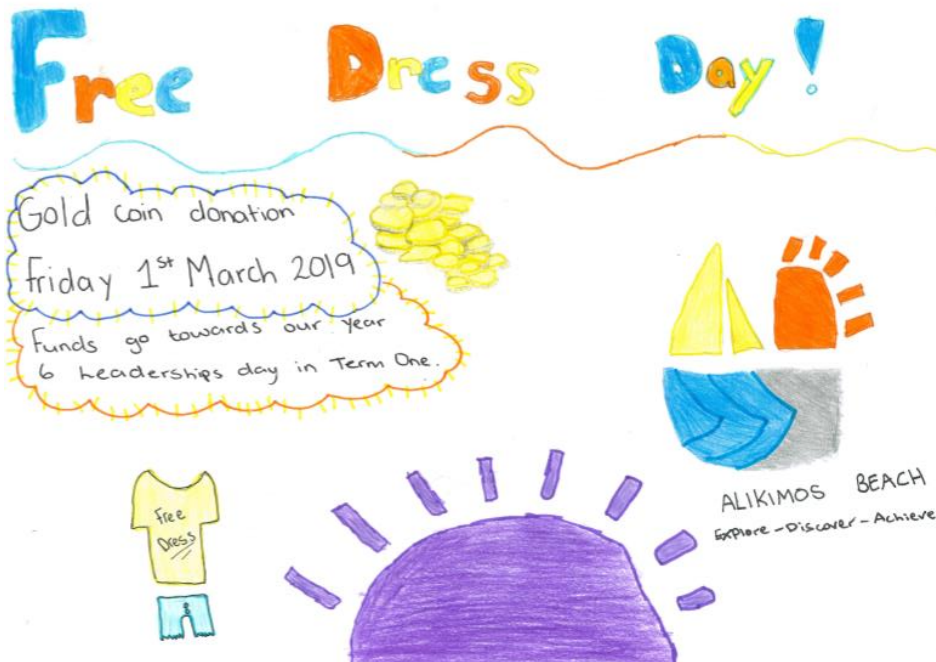 Free Dress Day!
Gold coin donation
Friday 1st March 2019
Funds go towards our year
6 Leaderships day in Term One.
Free
Dress
ALIKIMOS BEACH
Explore-Discover-Achieve